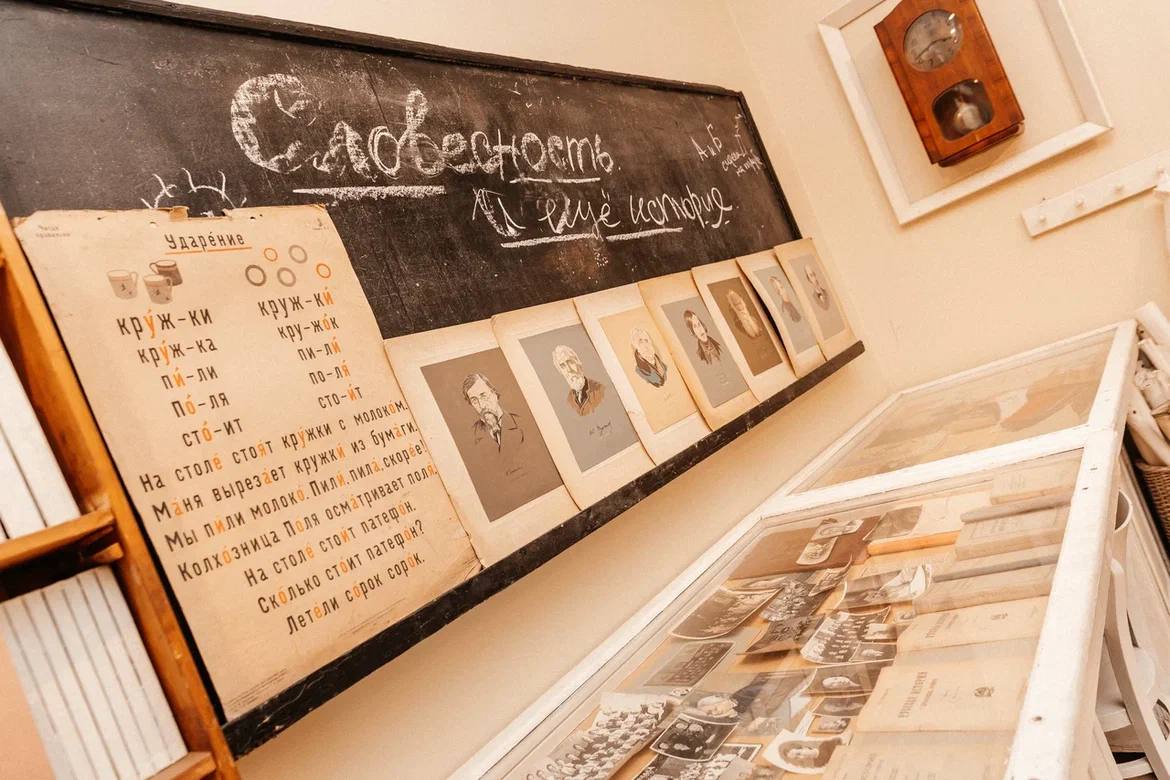 Словесность.
И ещё история
А и Б
Ударе́ние
кру́ж-ки
круж-ки́
кру́ж-ка
кру-жо́к
пи́-ли
пи-ли́
по́-ля
по-ля́
сто́-ит
сто-и́т
На столе́ стоя́т кру́жки с молоко́м.
Ма́ня выреза́ет кружки́ из бума́ги.
Мы пи́ли молоко́. Пили́, пила́, скоре́е!
Колхо́зница По́ля осма́тривает поля́.
На столе́ стои́т патефо́н.
Ско́лько сто́ит патефо́н?
Лете́ли со́рок соро́к.